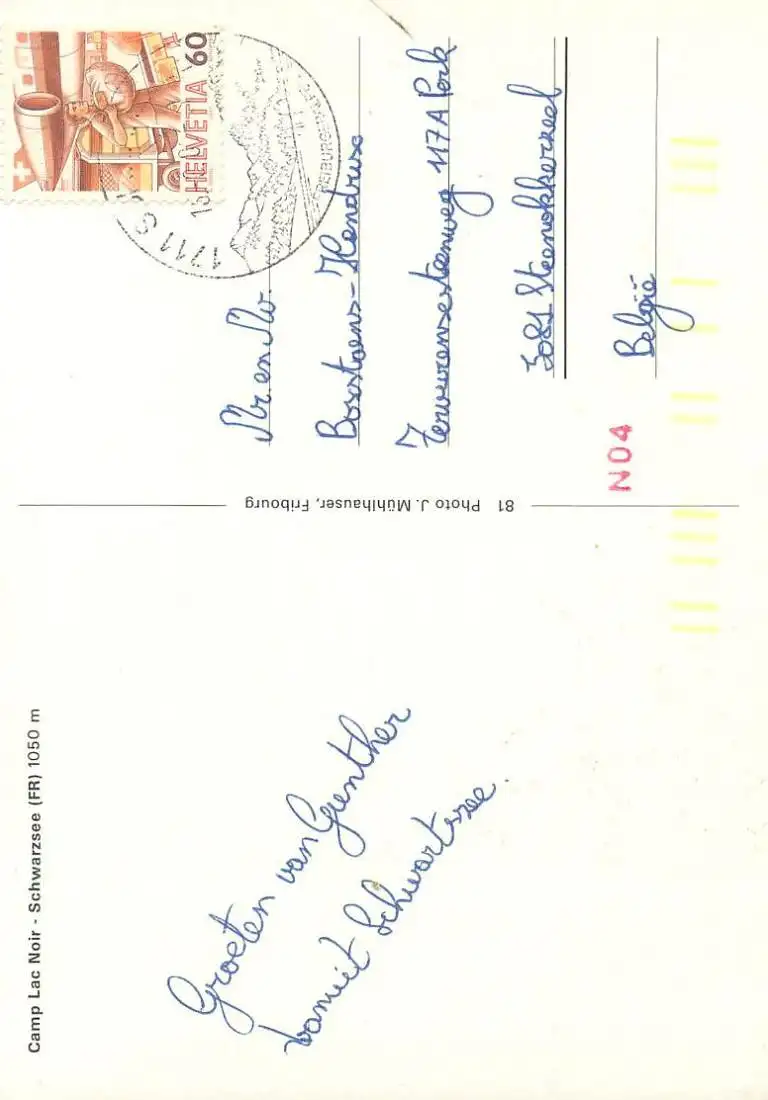 Camp Lac Noir - Schwarzsee (FR) 1050 m
Groeten van Gunther
vanuit Schwartssee
81 Photo J. Mühlhauser, Fribourg
HELVETIA 60
1711 S
Mr. en Mv.
Boxstaens-Hendrickx
Tervuursesteenweg 117A Perk
3081 Steenokkerzeel
België
N04